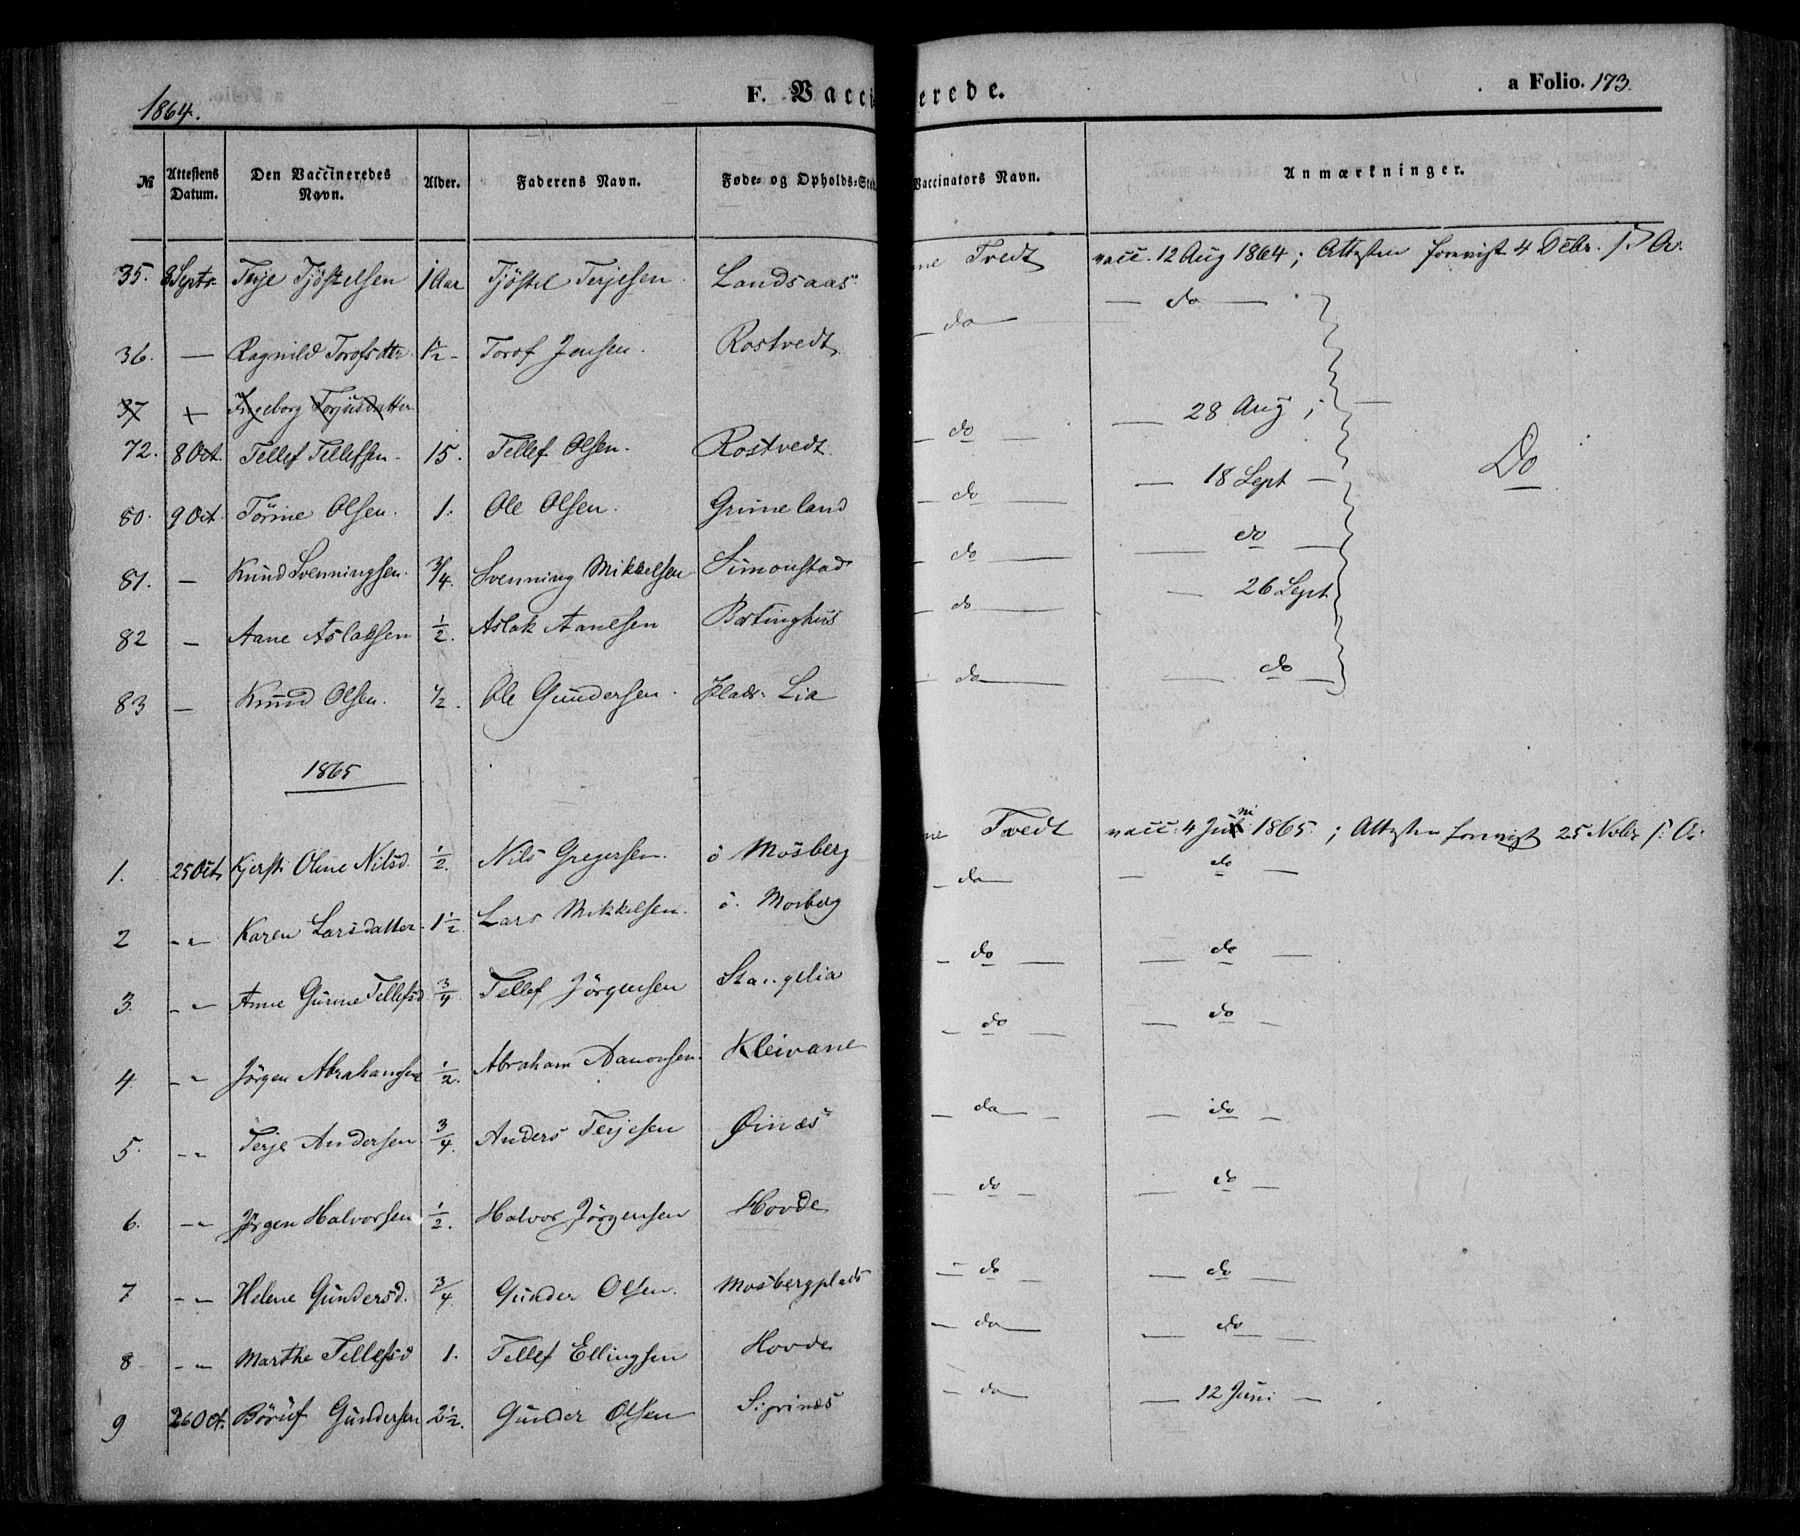 1864.
F. Vacci erede.
a Folio. 173.
№ Attestens Datum. Den Vaccineredes Navn. Alder. Faderens Navn. Føde- og Opholds-Sted Vaccinators Navn. Anmærkninger.
35. 8 Septr. Terje Tjöstelsen 1 Aar Tjöstel Terjesen. Landsaas Tvedt vacc. 12 Aug 1864; Attesten forevist 4 Decbr. s. A.
36. — Ragnild Torofsdttr. 1½ - Torof Jensen. Rostvedt — do — do —
37 + Ingeborg Torjusdatter
72. 8 Oct. Tellef Tellefsen. 15. Tellef Olsen. Rostvedt. — do — 28 Aug; —
80. 9 Oct. Törine Olsen. 1. Ole Olsen. Grimeland — do — 18 Sept — Do
81. — Knud Svenningsen. 3/4. Svenning Mikkelsen Simonstad — do — do —
82 — Aane Aslaksen ½. Aslak Aanesen — do — 26 Sept
83 — Knud Olsen. ½. Ole Gundersen. Plads. Lia — do — do —
1865
1. 25 Oct. Kjersti Oline Nilsd. ½. Nils Gregersen. ö Mosberg Tvedt vacc. 4 Juni 1865.; Attesten forevist 25 Novbr s. A.
2 - „ - Karen Larsdatter. 1½ Lars Mikkelsen. ö. Mosberg — do — do —
3. - „ Anne Gurine Tellefsd 3/4. Tellef Jörgensen Stangelia — do — do —
4. - „ Jörgen Abrahamsen ½. Abraham Aanonsen. Kleivane — do — do —
5. - „ Terje Andersen 3/4. Anders Terjesen Øinæs — do — do —
6. - „ Jörgen Halvorsen ½. Halvor Jörgensen Hovde — do — do —
7 - „ Helene Gundersd. 3/4. Gunder Olsen. Mosbergplads — do — do —
8 - „ Marthe Tellefsd 1. Tellef Ellingsen Hovde — do — do —
9 26 Oct. Böruf Gundersen 2½. Gunder Olsen Siprinæs — do — 12 Juni —